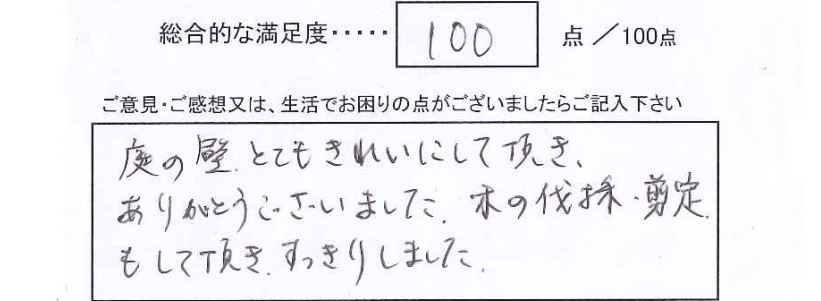 総合的な満足度・・・・・ 100 点 ／100点
ご意見・ご感想又は、生活でお困りの点がございましたらご記入下さい
庭の壁、とてもきれいにして頂き、
ありがとうございました。木の伐採・剪定
もして頂き、すっきりしました。